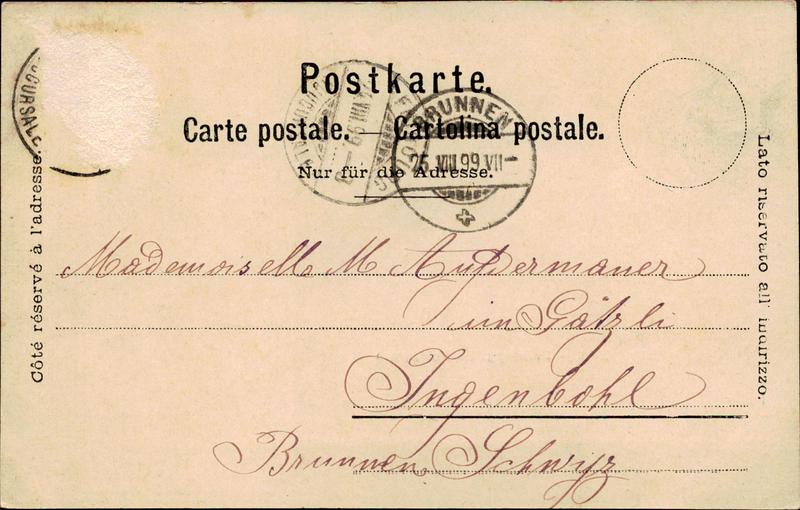 Postkarte.
Carte postale. — Cartolina postale.
Nur für die Adresse.
BRUNNEN
25. VIII. 99. VII
Côté réservé à l'adresse.
Lato riservato all indirizzo.
Mademoiselle M Aufdermauer
im Gätzli
Ingenbohl
Brunnen, Schwyz